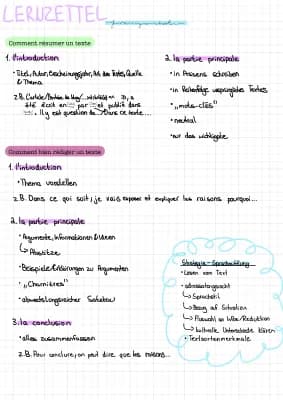 LERNZETTEL
Comment résumer un texte
1. l'introduction
• Titel, Autor, Erscheinungsjahr, Art des Textes, Quelle
& Thema
z.B. L'article/
été écrit en par et publié dans
Il y est question de / Dans ce texte...
2. la partie principale
• in Präsens schreiben
• in Reihenfolge ursprünglichen Textes
• „mots-clés"
• neutral
• nur das wichtigste
Comment bien rédiger un texte
1. l'introduction
• Thema vorstellen
z.B. Dans ce qui suit, je vais exposer et expliquer les raisons pourquoi...
2. la partie principale
• Argumente, Informationen & Ideen
↳ Absätze
• Beispiele/Erklärungen zu Argumenten
• „Charnières"
• abwechslungsreicher Satzbau
3. la conclusion
• alles zusammenfassen
z.B. Pour conclure, on peut dire que les raisons...
Strategie - Sprachmittlung
• Lesen vom Text
• adressatengerecht
↳ Sprachstil
↳ Bezug auf Situation
↳ Auswahl an Infos/Reduktion
↳ kulturelle Unterschiede klären
• Textsortenmerkmale